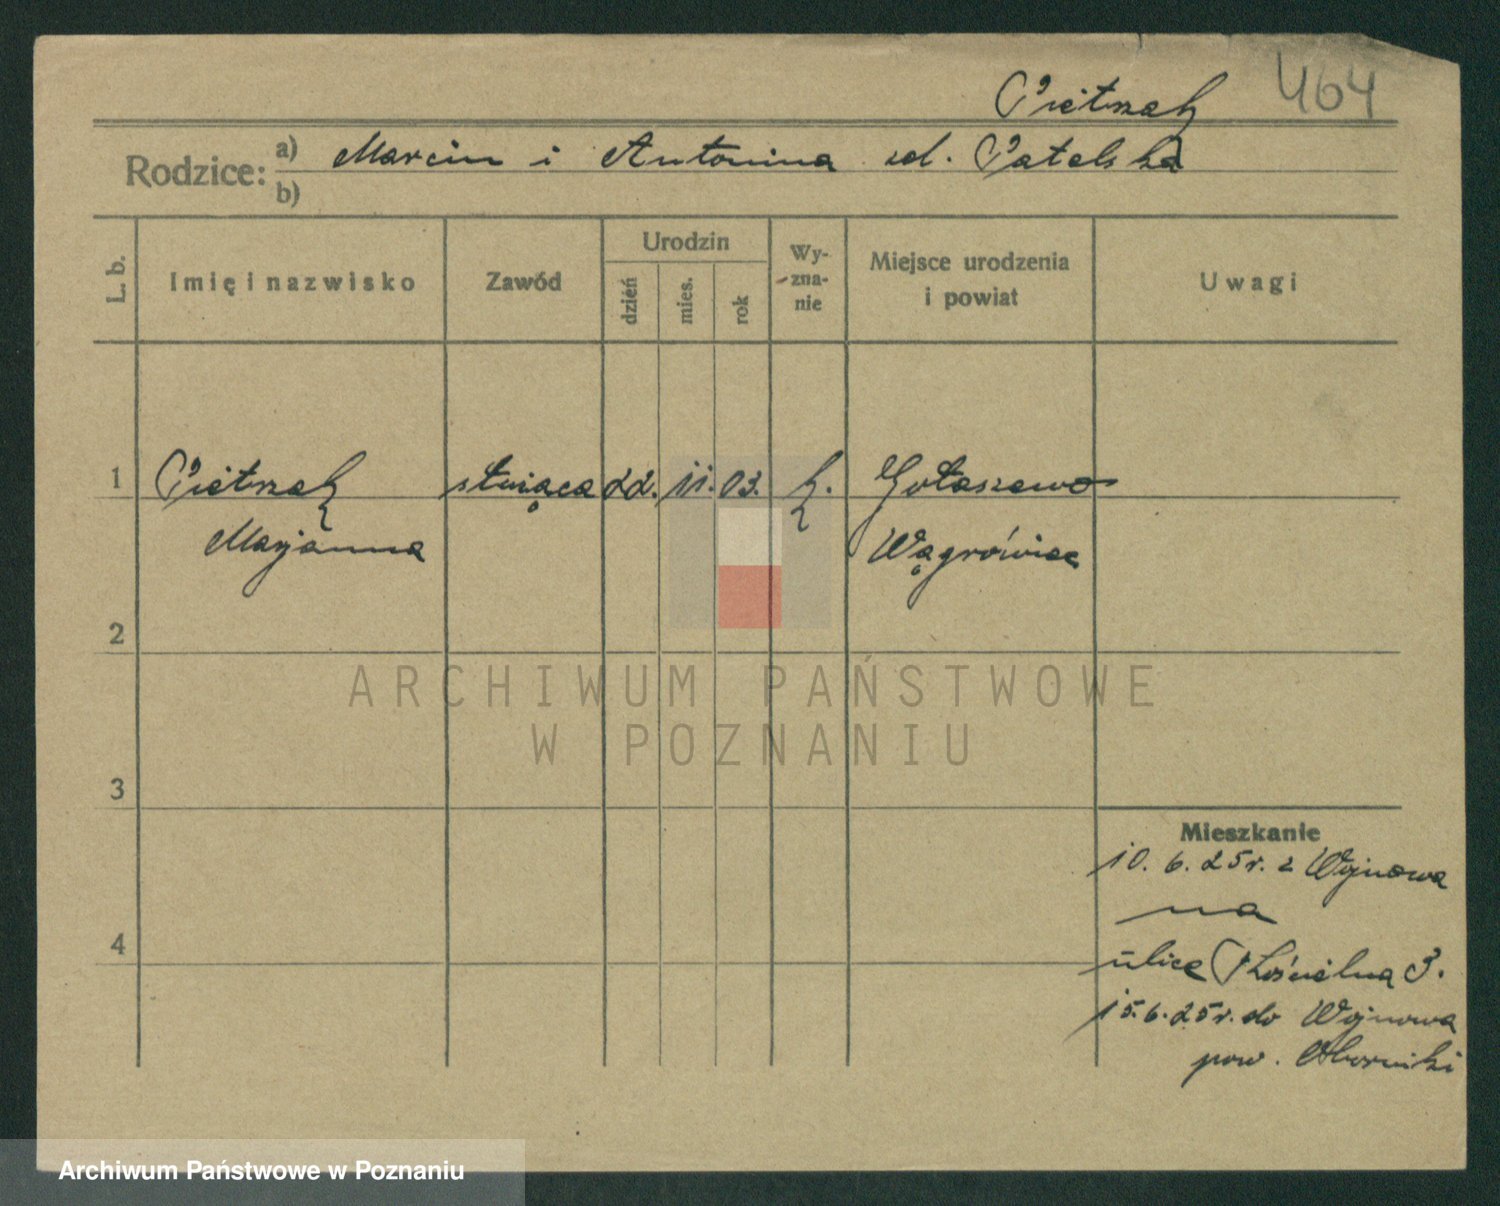 Pietrzak 464
Rodzice: a) Marcin i Antonina zd. Patelska
b)
L. b.
Imię i nazwisko
Zawód
Urodzin
dzień
mies.
rok
Wy-
zna-
nie
Miejsce urodzenia
i powiat
Uwagi
1 Pietrzak służąca 22. 11. 03. k. Gołaszewo
Marjanna Wągrówiec
2
ARCHIWUM PAŃSTWOWE
W POZNANIU
3
Mieszkanie
10. 6. 25 r. z Wojnowa
na
4
ulicę Kościelną 3.
15. 6. 25 r. do Wojnowa
pow. Oborniki
Archiwum Państwowe w Poznaniu